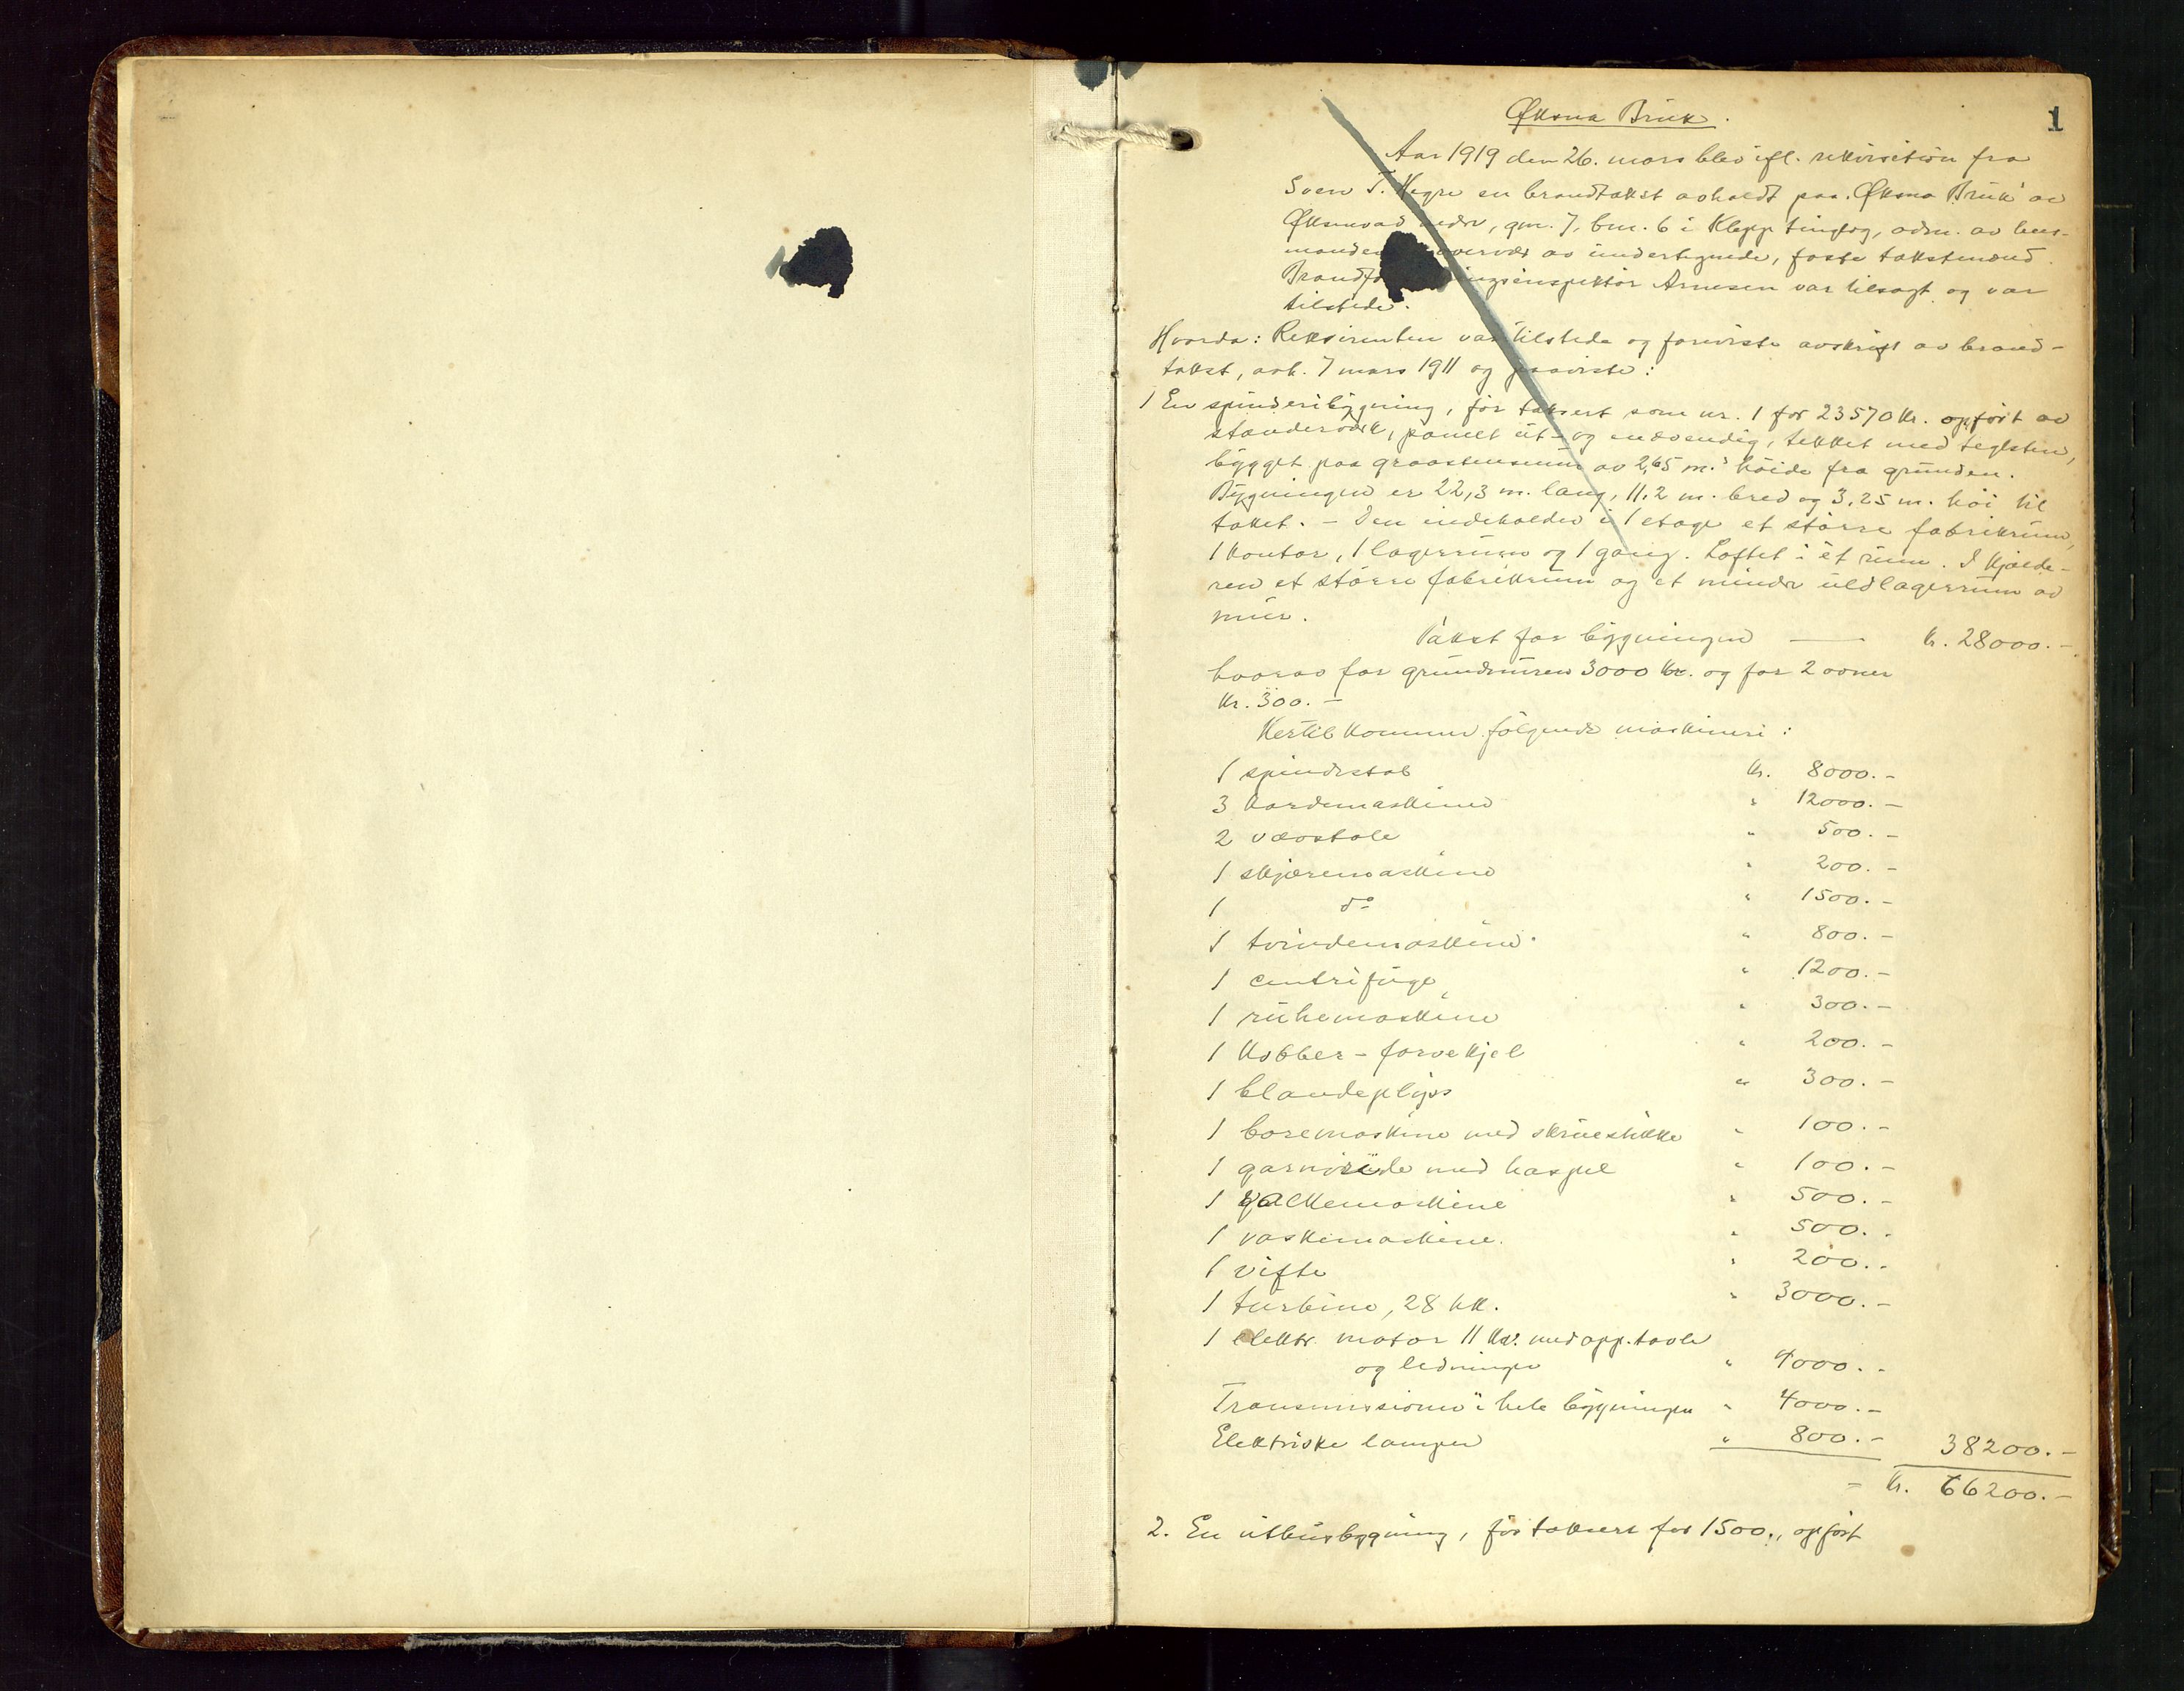 1
Øksna Bruk.
Aar 1919 den 26. mars blev ifl. rekvisition fra
Sven T. Hegre en brandtakst avholdt paa "Øksna Bruk" av
Øksnevad nedre, gnr. 7, bnr. 6 i Klepp tinglag, adm. av lens-
manden overvær av undertegnede, faste takstmænd.
Brandfo ingsinspektør Arnesen var tilsagt og var
tilstede.
Hvorda: Rekvirenten var tilstede og foreviste avskrift av brand-
takst, avh. 7 mars 1911 og paaviste:
1 En spinderibygning, før taksert som nr. 1 for 23570 Kr. opført av
standerverk, panelt ut- og indvendig, tekket med teglsten,
bygget paa graastensmur av 2,65 m.s høide fra grunden.
Bygningen er 22,3 m. lang, 11,2 m. bred og 3,25 m. høi til
taket. - Den indeholder i 1 etage et større fabrikrum,
1 kontor, 1 lagerrum og 1 gang. Loftet i ét rum. I kjælde-
ren et større fabrikrum og et mindre uldlagerrum av
mur.
Takst for bygningen — kr. 28000.-
hvorav for grundmuren 3000 kr. og for 2 ovner
Kr. 300.-
Hertil kommer følgende maskineri:
1 spindestol kr. 8000.-
3 kardemaskiner " 12000.-
2 vævstole " 500.-
1 skjæremaskine " 200.-
1 do " 1500.-
1 tvindemaskine " 800.-
1 centrifuge " 1200.-
1 ruhemaskine " 300.-
1 kobber-farvekjel " 200.-
1 blandepløis " 300.-
1 boremaskine med skruestikke " 100.-
1 garnvinde med haspel " 100.-
1 valkemaskine " 500.-
1 vaskemaskine. " 500.-
1 vifte " 200.-
1 turbine, 28 hk. " 3000.-
1 elektr. motor 11 kw. med app.tavle
og ledninger " 4000.-
Transmissioner i hele bygningen " 4000.-
Elektriske lamper " 800.- 38200.-
- kr. 66200.-
2. En uthusbygning, før taksert for 1500., opført